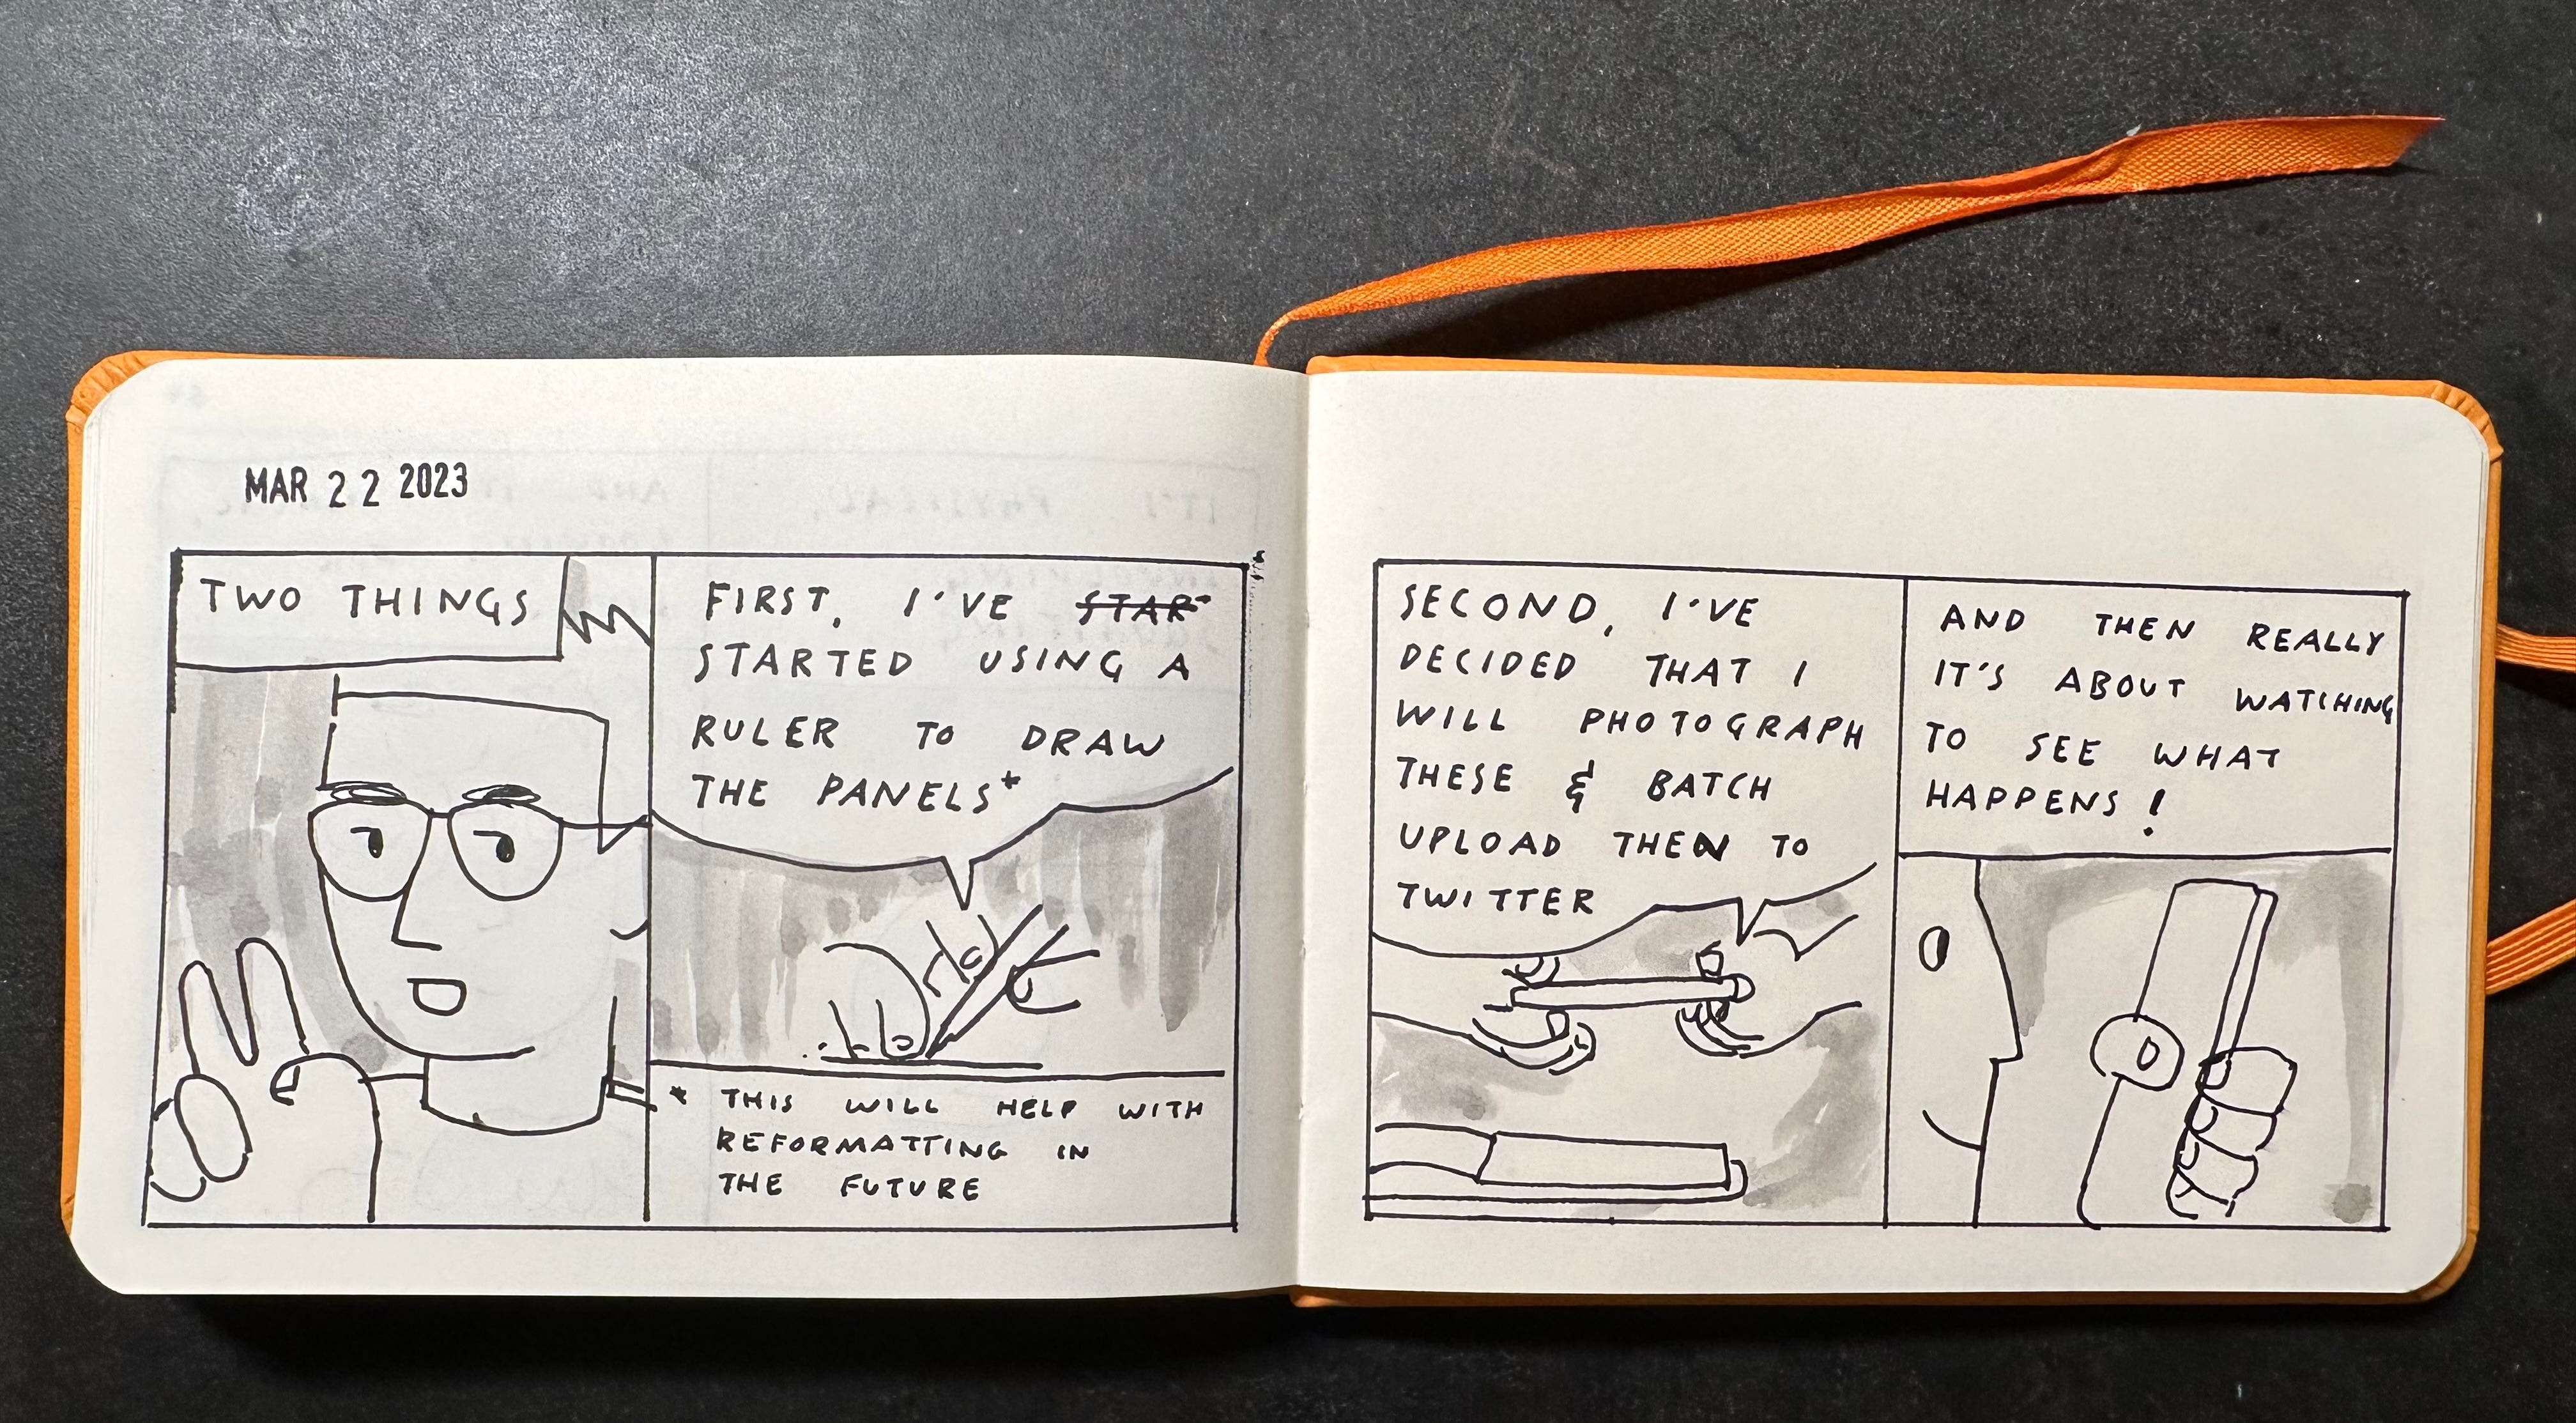 MAR 22 2023
TWO THINGS
FIRST, I'VE STAR
STARTED USING A
RULER TO DRAW
THE PANELS*
* THIS WILL HELP WITH
REFORMATTING IN
THE FUTURE
SECOND, I'VE
DECIDED THAT I
WILL PHOTOGRAPH
THESE & BATCH
UPLOAD THEN TO
TWITTER
AND THEN REALLY
IT'S ABOUT WATCHING
TO SEE WHAT
HAPPENS!